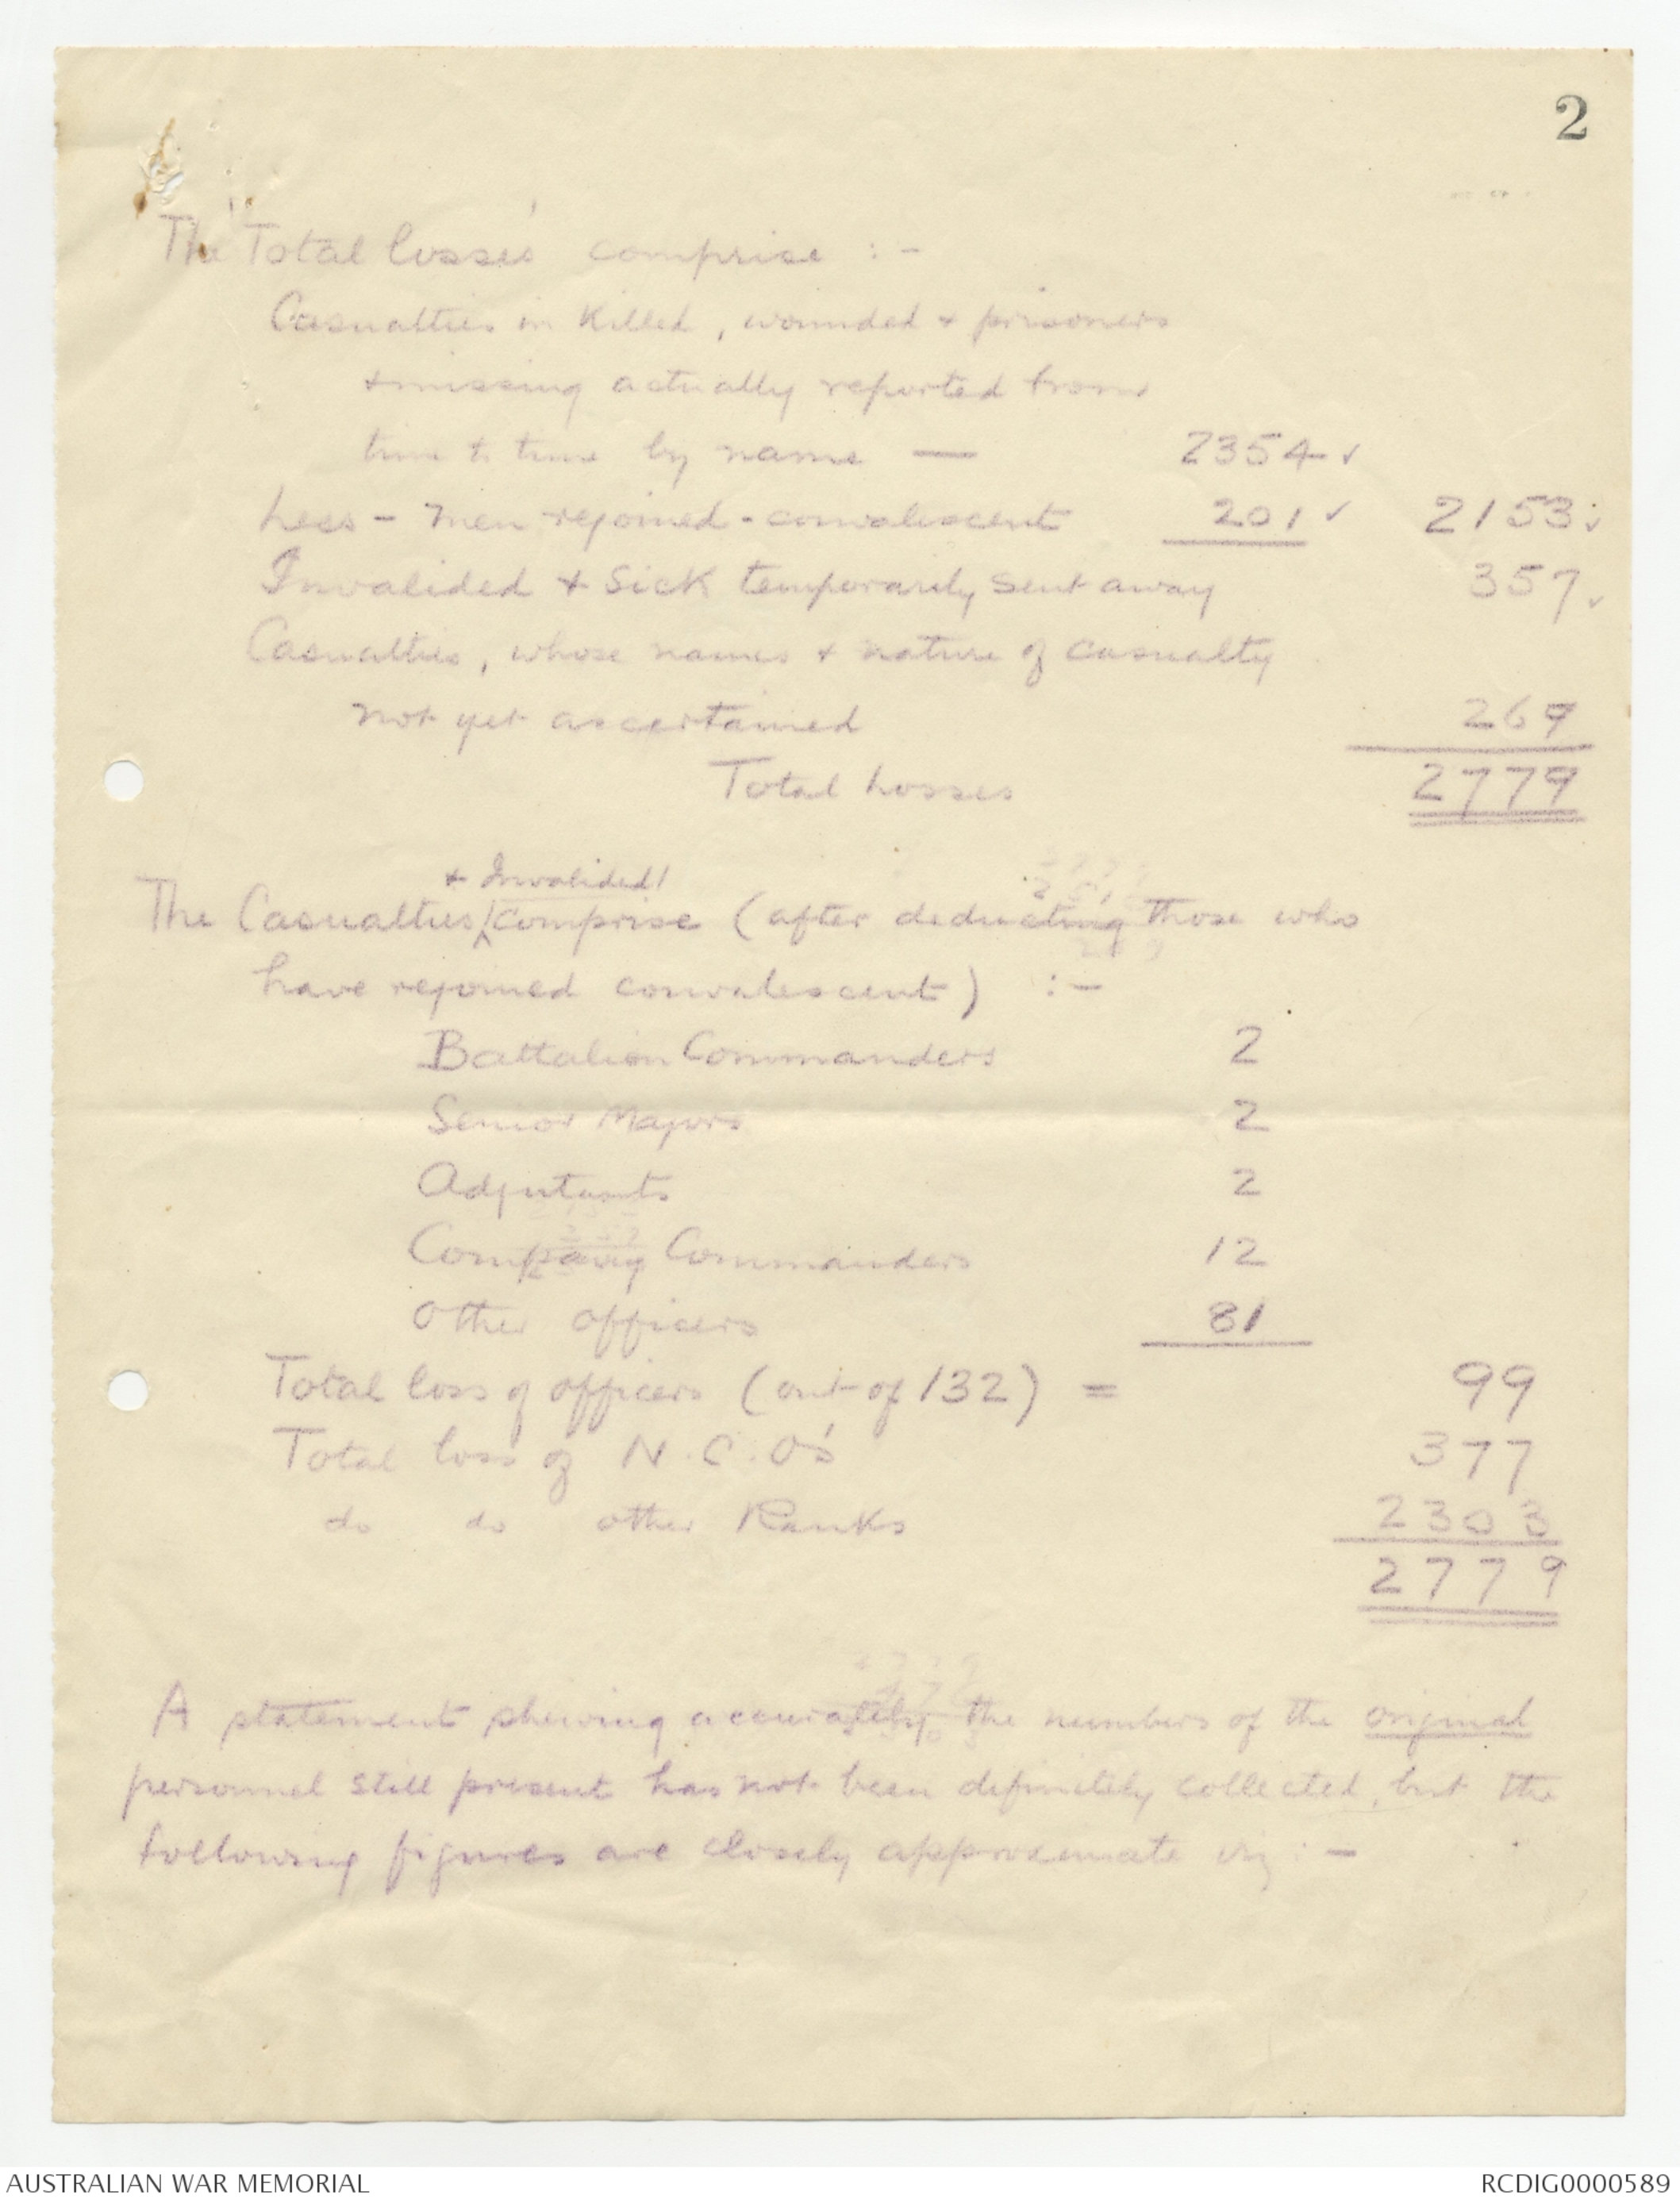 2
The 'Total losses' comprise :-
Casualties in Killed, wounded + prisoners
+ missing actually reported from
time to time by name — 2354 ✓
Less - men rejoined - convalescent 201 ✓ 2153 ✓
Invalided + Sick temporarily sent away 357 ✓
Casualties, whose names + nature of casualty
not yet ascertained 269
Total Losses 2779
+ Invalided
The Casualties comprise (after deducting those who
have rejoined convalescent) :-
Battalion Commanders 2
Senior Majors 2
Adjutants 2
Company Commanders 12
Other officers 81
Total loss of officers (out of 132) = 99
Total loss of N.C.O's 377
do do other Ranks 2303
2779
A statement shewing accurately the numbers of the original
personnel still present has not been definitely collected, but the
following figures are closely approximate viz :-
AUSTRALIAN WAR MEMORIAL
RCDIG0000589